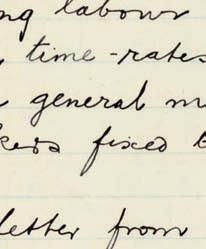 ng labour
time-rates
general m
kers fixed b
letter from